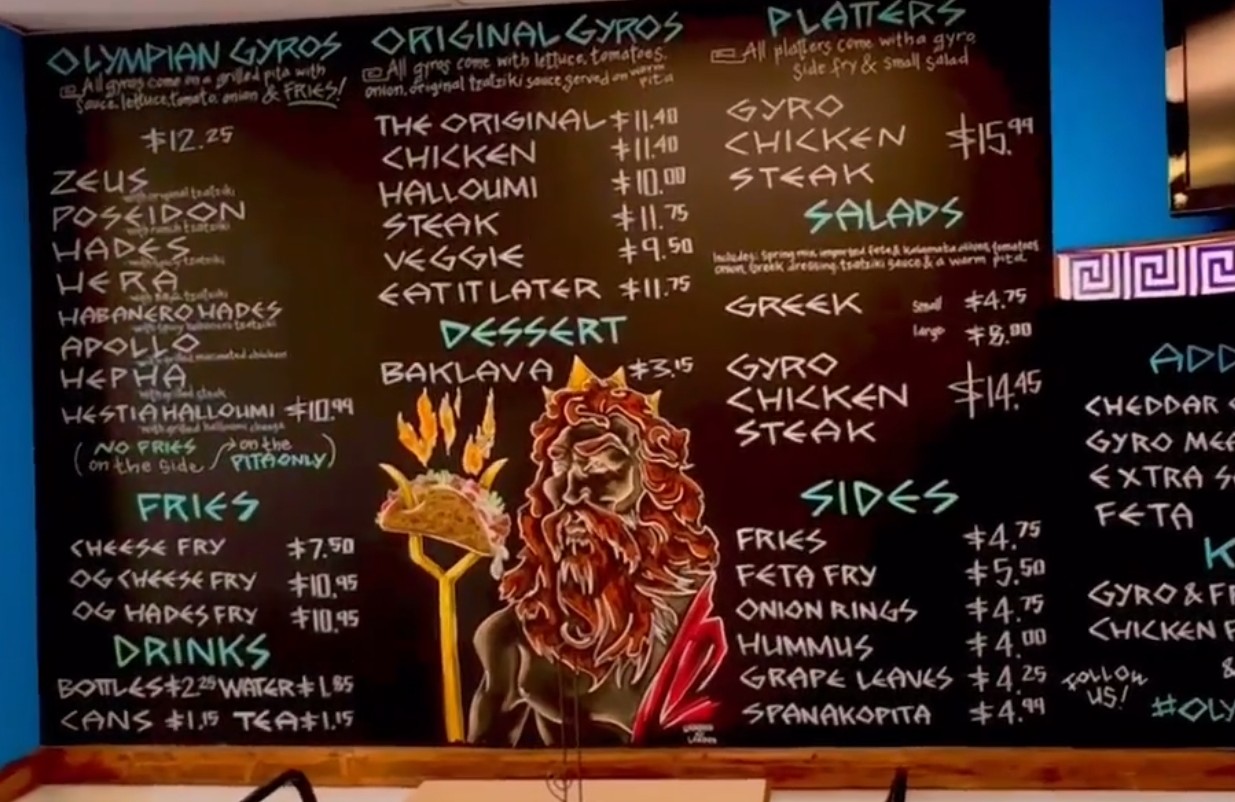 OLYMPIAN GYROS
All gyros come on a grilled pita with
sauce, lettuce, tomato, onion & FRIES!
$12.25
ZEUS
with original tzatziki
POSEIDON
with ranch tzatziki
HADES
with spicy tzatziki
HERA
tzatziki
HABANERO HADES
with spicy habanero tzatziki
APOLLO
with grilled marinated chicken
HEPHA
with grilled steak
HESTIA HALLOUMI $10.99
with grilled halloumi cheese
(NO FRIES → on the
on the side PITA ONLY)
FRIES
CHEESE FRY $7.50
OG CHEESE FRY $10.95
OG HADES FRY $10.95
DRINKS
BOTTLES $2.25 WATER $1.85
CANS $1.15 TEA $1.15
ORIGINAL GYROS
All gyros come with lettuce, tomatoes,
onion, original tzatziki sauce, served on warm
pita
THE ORIGINAL $11.40
CHICKEN $11.40
HALLOUMI $10.00
STEAK $11.75
VEGGIE $9.50
EAT IT LATER $11.75
DESSERT
BAKLAVA $3.15
PLATTERS
All platters come with a gyro,
side fry & small salad
GYRO
CHICKEN $15.99
STEAK
SALADS
Includes: Spring mix, imported feta & kalamata olives, tomatoes
onion, Greek dressing, tzatziki sauce & a warm pita
GREEK Small $4.75
large $8.00
GYRO
CHICKEN $14.45
STEAK
SIDES
FRIES $4.75
FETA FRY $5.50
ONION RINGS $4.75
HUMMUS $4.00
GRAPE LEAVES $4.25
SPANAKOPITA $4.99
ADD
CHEDDAR
GYRO MEA
EXTRA S
FETA
K
GYRO & FR
CHICKEN F
FOLLOW
US!
&
#OLY